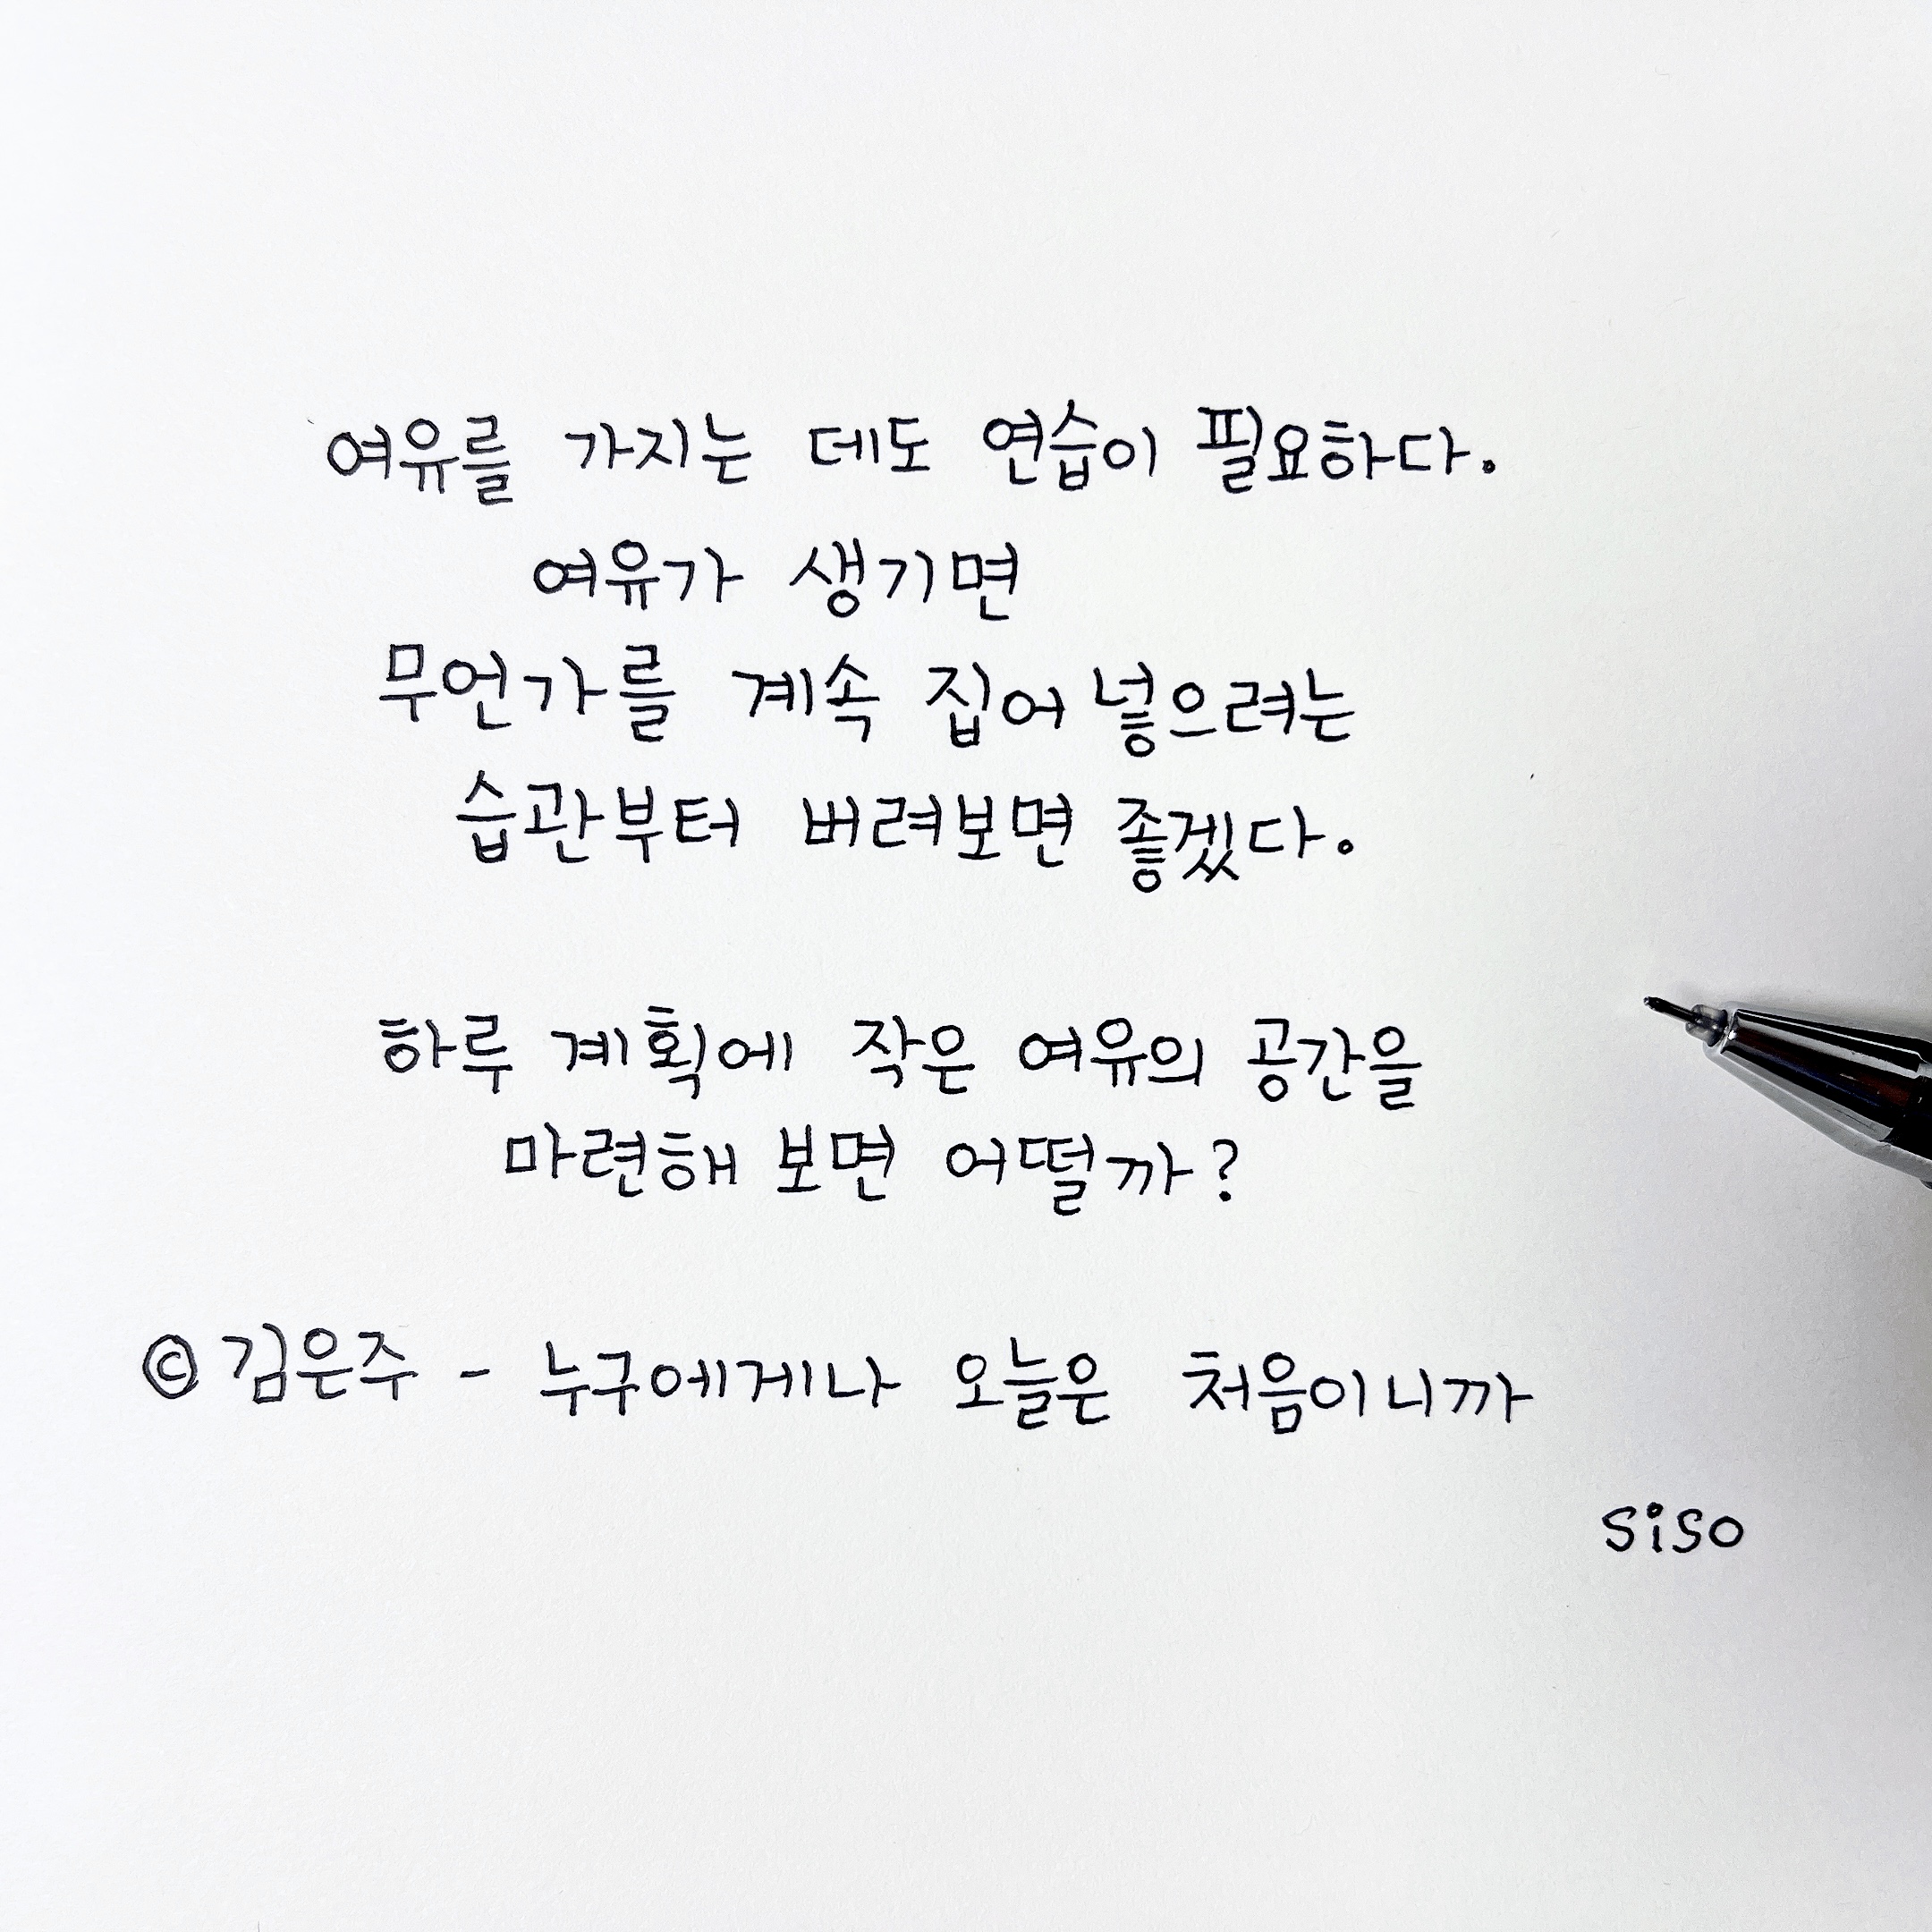 여유를 가지는 데도 연습이 필요하다.
여유가 생기면
무언가를 계속 집어 넣으려는
습관부터 버려보면 좋겠다.
하루 계획에 작은 여유의 공간을
마련해 보면 어떨까?
© 김은주 - 누구에게나 오늘은 처음이니까
siso